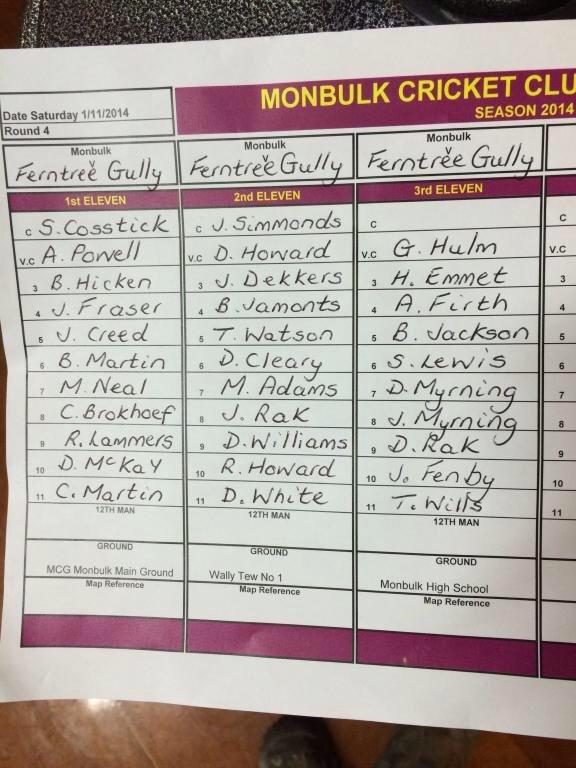 MONBULK CRICKET CLU
SEASON 2014
Date Saturday 1/11/2014
Round 4
Monbulk
v
Ferntree Gully
1st ELEVEN
C S. Cosstick
V.C A. Powell
3 B. Hicken
4 J. Fraser
5 J. Creed
6 B. Martin
7 M. Neal
8 C. Brokhoef
9 R. Lammers
10 D. McKay
11 C. Martin
12TH MAN
GROUND
MCG Monbulk Main Ground
Map Reference
Monbulk
v
Ferntree Gully
2nd ELEVEN
C J. Simmonds
V.C D. Howard
3 J. Dekkers
4 B. Jamonts
5 T. Watson
6 D. Cleary
7 M. Adams
8 J. Rak
9 D. Williams
10 R. Howard
11 D. White
12TH MAN
GROUND
Wally Tew No 1
Map Reference
Monbulk
v
Ferntree Gully
3rd ELEVEN
C
V.C G. Hulm
3 H. Emmet
4 A. Firth
5 B. Jackson
6 S. Lewis
7 D. Myrning
8 J. Myrning
9 D. Rak
10 J. Fenby
11 T. Wills
12TH MAN
GROUND
Monbulk High School
Map Reference
C
V.C
3
4
5
6
7
8
9
10
11